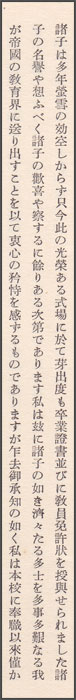 諸子は多年螢雪の効空しからす只今此の光榮ある式場に於て芽出度も卒業證書並びに敎員免許狀を授與せられました諸
子の名譽や想ふべく諸子の歡喜や察するに餘りある次第であります私は玆に諸子の如き濟々たる多士を多事多艱なる我
が帝國の敎育界に送り出すことを以て衷心の矜恃を感ずるものでありますが乍去御承知の如く私は本校に奉職以來僅か